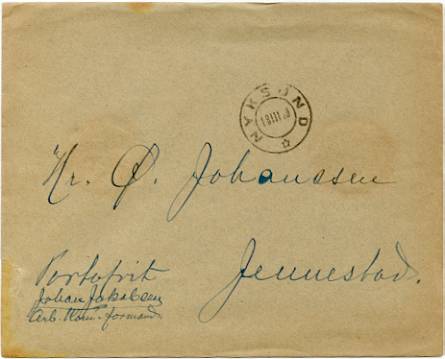 NYKSUND
Hr. Ø. Johanssen
Jennestad.
Portofrit
Johan Jakobsen
Arb. Kom. formand